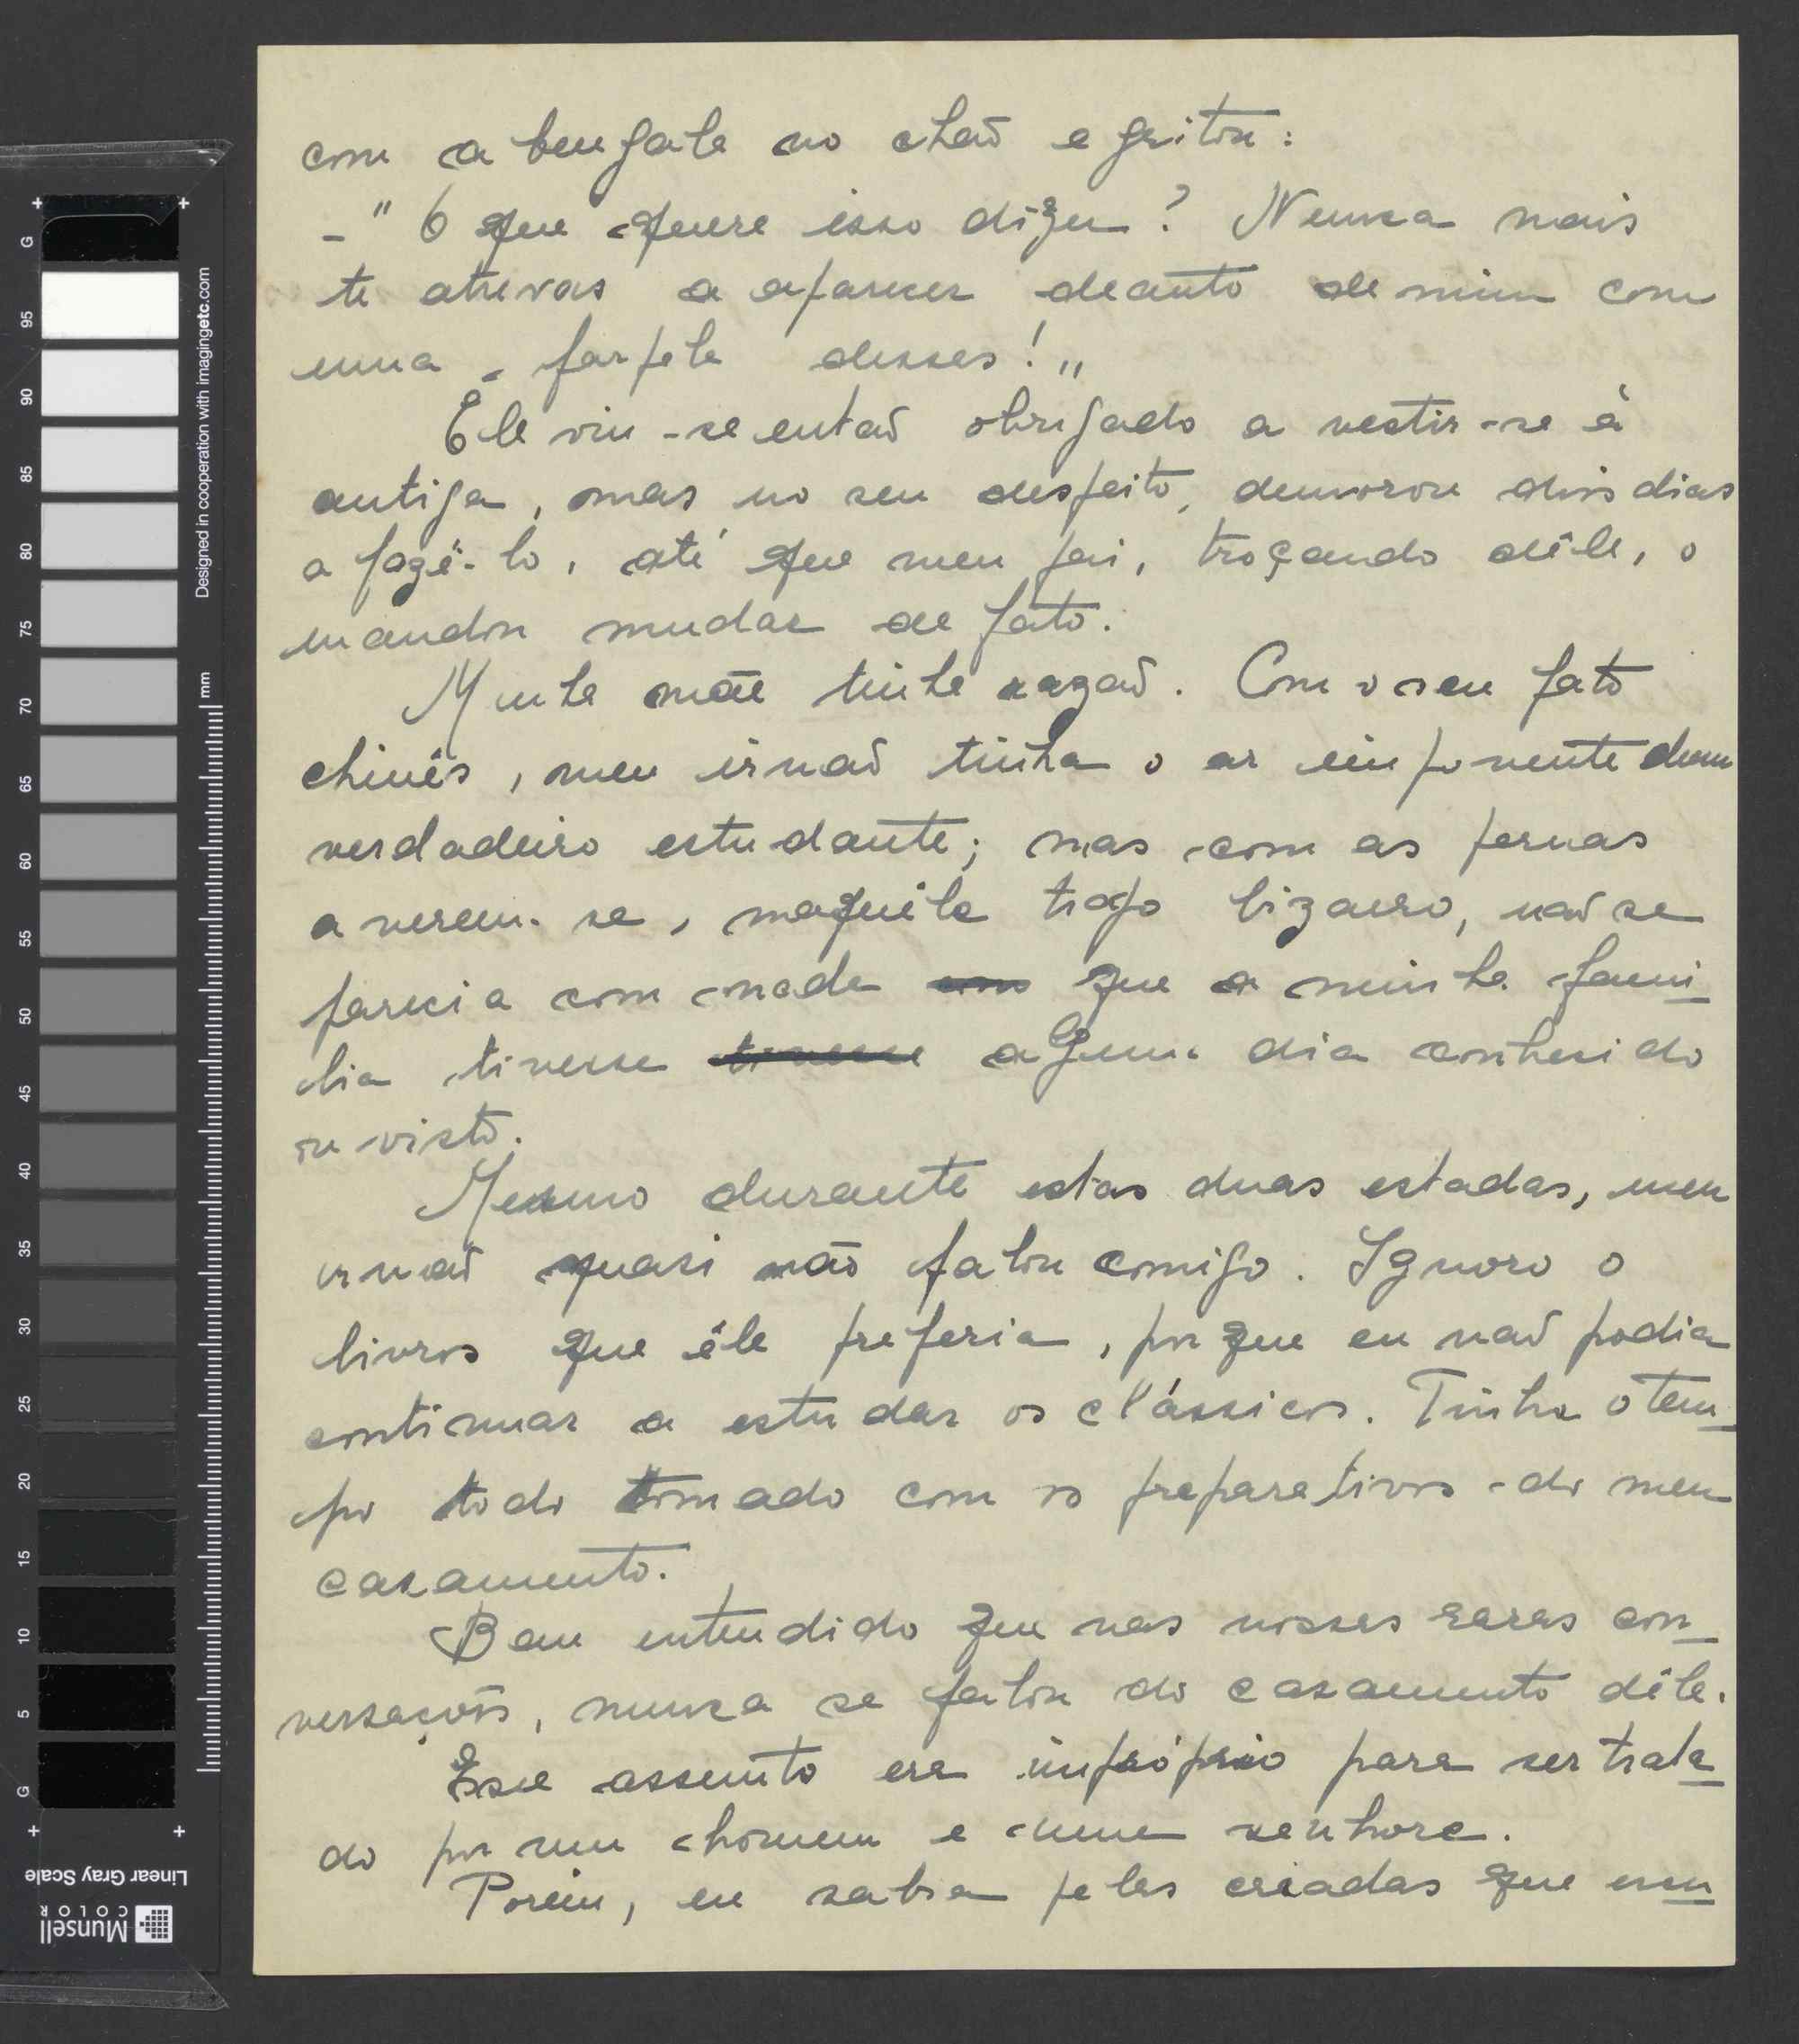 com a bengala no chaõ e gritou:
- "O que quere isso dizer? Nunca mais
te atrevas a aparecer deante de mim com
uma farpela desses!„
Ele viu-se entaõ obrigado a vestir-se à
antiga, mas no seu despeito, demorou dois dias
a fazê-lo, até que meu pai, troçando dêle, o
mandou mudar de fato.
Minha mãe tinha razaõ. Com o seu fato
chinês, meu irmaõ tinha o ar imponente dum
verdadeiro estudante; mas com as pernas
a verem-se, naquele trajo bizarro, naõ se
parecia com nada que a minha fami-
lia tivesse tivesse algum dia conhecido
ou visto.
Mesmo durante estas duas estadas, meu
irmaõ quasi não falou comigo. Ignoro o
livros que êle preferia, porque eu naõ podia
continuar a estudar os clássicos. Tinha o tem-
po todo tomado com os preparativos do meu
casamento.
Bem entendido que nas nossas raras con-
versações, nunca se falou do casamento dêle.
Êsse assunto era impróprio para ser trata-
do por um homem e uma senhora.
Porém, eu sabia pelas criadas que meu
Designed in cooperation with imagingetc.com
mm
G 95 90 85 80 75 70 65 60 55 50 45 40 35 30 25 20 15 10 5 G
Linear Gray Scale
Munsell
COLOR